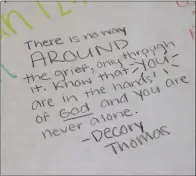 There is no way
AROUND
the grief, only through
it. Know that "YOU"
are in the hands
of GOD and you are
never alone.
-Decory
Thomas